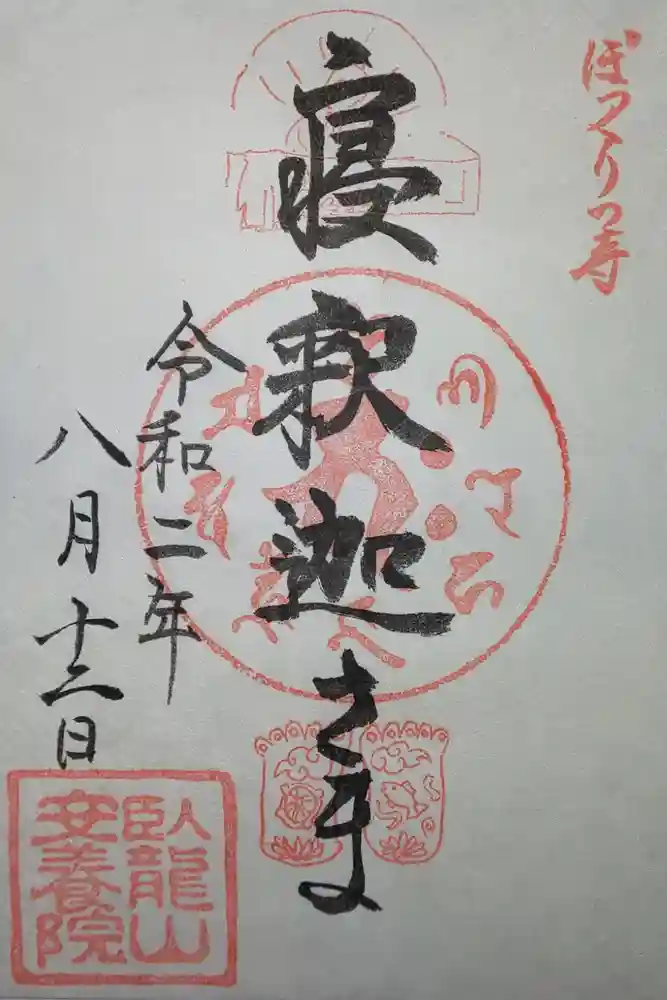 ぽっくりっ寺
寝釈迦さま
令和二年
八月十二日
臥龍山
安養院